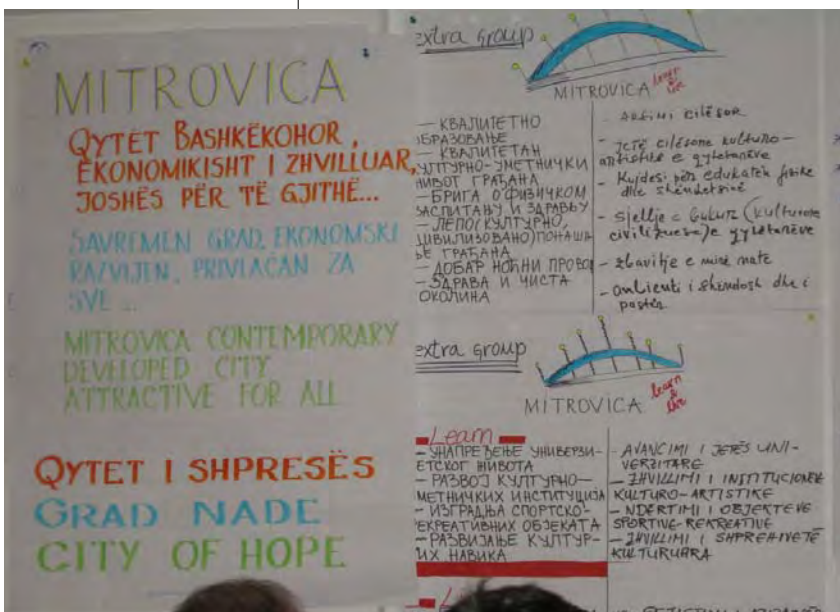 MITROVICA
QYTET BASHKËKOHOR,
EKONOMIKISHT I ZHVILLUAR,
JOSHËS PËR TË GJITHË...
SAVREMEN GRAD, EKONOMSKI
RAZVIJEN, PRIVLAČAN ZA
SVE ...
MITROVICA CONTEMPORARY
DEVELOPED CITY
ATTRACTIVE FOR ALL
QYTET I SHPRESËS
GRAD NADE
CITY OF HOPE
extra group
MITROVICA learn
& live
— КВАЛИТЕТНО
ОБРАЗОВАЊЕ
— КВАЛИТЕТАН
КУЛТУРНО-УМЕТНИЧКИ
ЖИВОТ ГРАЂАНА
— БРИГА О ФИЗИЧКОМ
ВАСПИТАЊУ И ЗДРАВЉУ
— ЛЕПО (КУЛТУРНО,
ЦИВИЛИЗОВАНО) ПОНАША
ЊЕ ГРАЂАНА
— ДОБАР НОЋНИ ПРОВОД
— ЗДРАВА И ЧИСТА
ОКОЛИНА
- cilësor
- jetë cilësore kulturo—
artistike e qytetarëve
- Kujdesi për edukatën fizike
dhe shëndetësinë
- sjellje e bukur (kulturore
e qytetarëve
- zbavitje e mirë nate
- ambienti i shëndosh dhe i
pastër
extra group
MITROVICA learn
& live
Learn
— УНАПРЕЂЕЊЕ УНИВЕРЗИ-
ТЕТСКОГ ЖИВОТА
— РАЗВОЈ КУЛТУРНО—
УМЕТНИЧКИХ ИНСТИТУЦИЈА
— ИЗГРАДЊА СПОРТСКО-
РЕКРЕАТИВНИХ ОБЈЕКАТА
— РАЗВИЈАЊЕ КУЛТУР-
НИХ НАВИКА
- AVANCIMI I JETËS UNI-
VERZITARE
- ZHVILLIMI I INSTITUCIONEVE
KULTURO-ARTISTIKE
- NDËRTIMI I OBJEKTEVE
SPORTIVE-REKREATIVE
- ZHVILLIMI I SHPREHIVETË
KULTURUARA